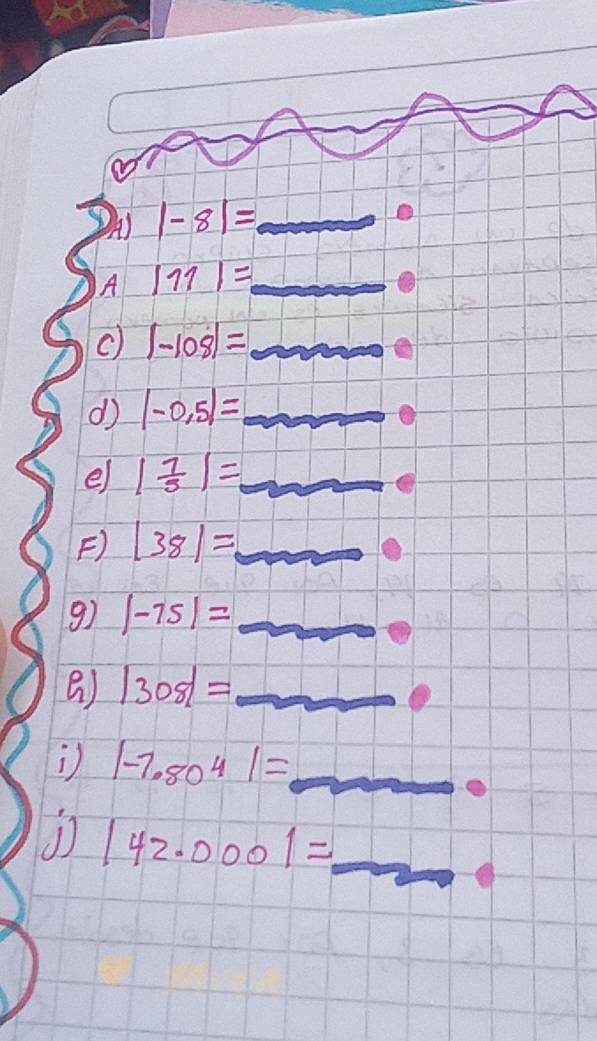 A) |-8|=
A |11|=
c) |-108|=
d) |-0,5|=
e) |7/5|=
F) |38|=
g) |-75|=
h) |308|=
i) |-7.804|=
j) |42.000|=